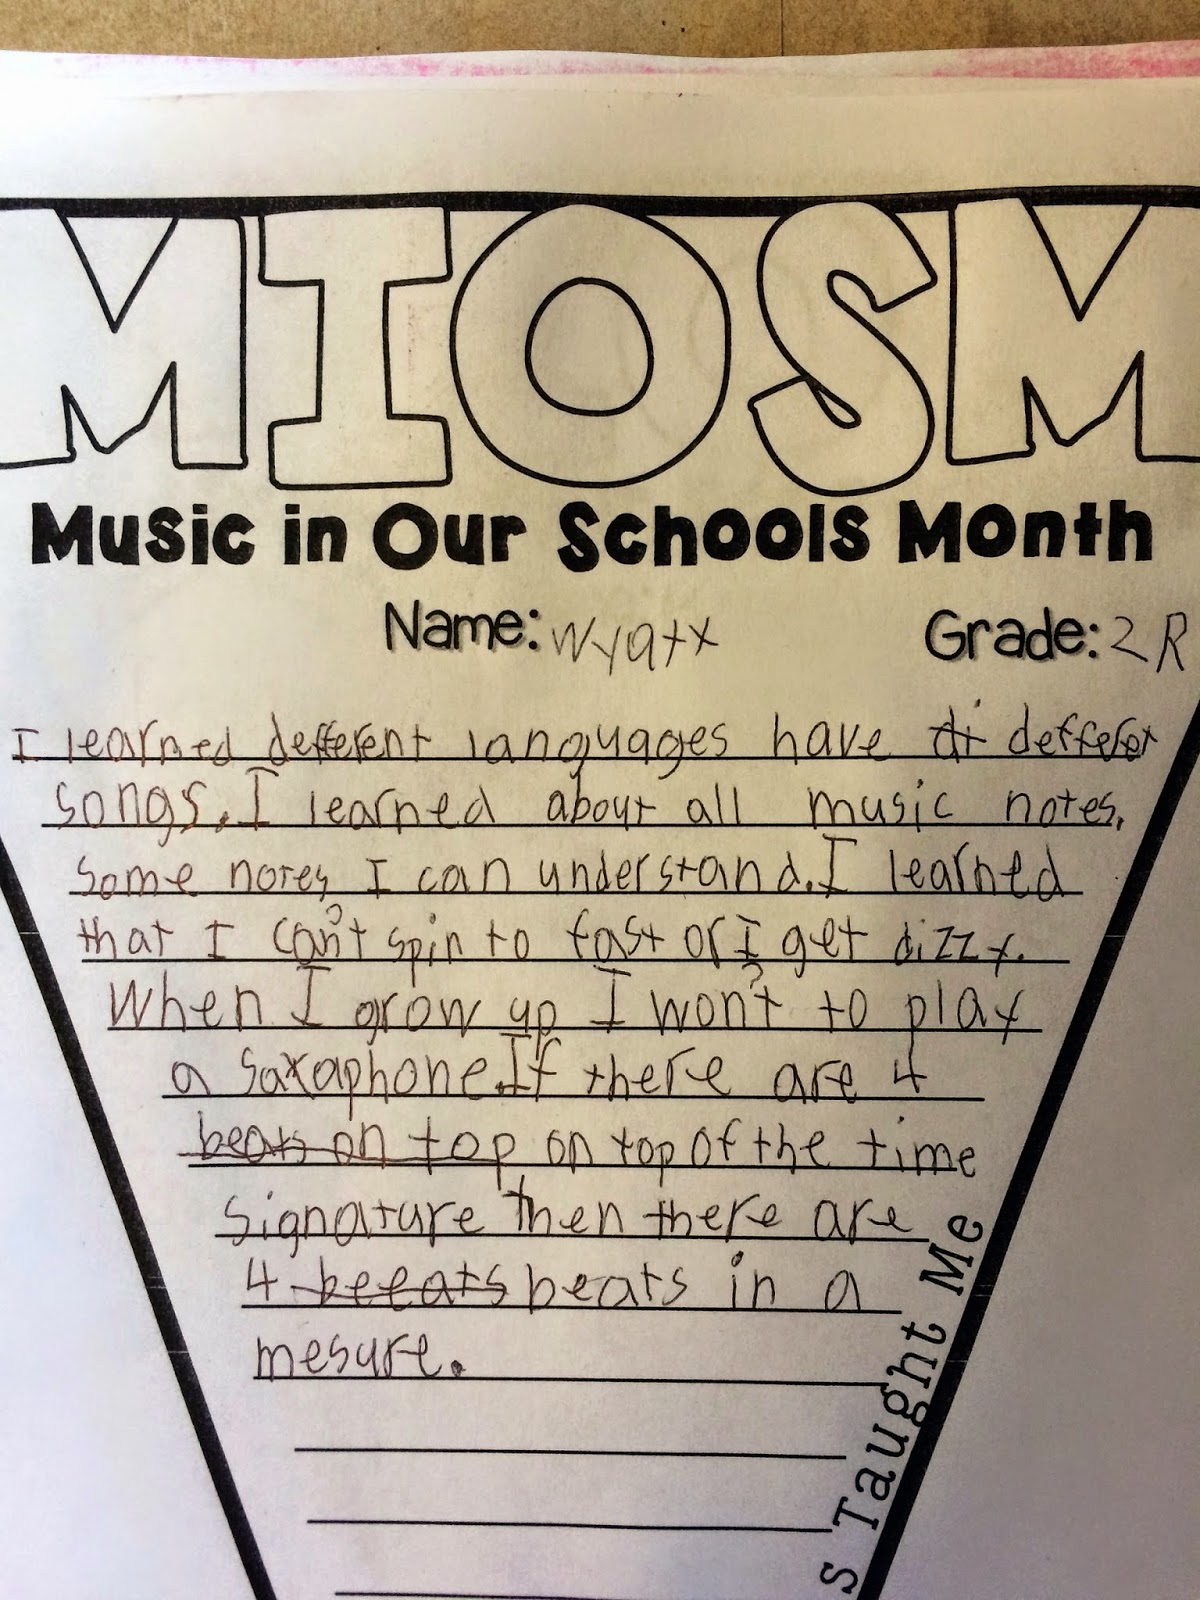 MIOSM
Music in Our Schools Month
Name: Wyatx Grade: 2 R
I learned defferent languages have di defferet
songs. I learned about all music notes,
some notes I can understand. I learned
that I can't spin to fast or I get dizzy.
When I grow up I won't to play
a saxaphone. If there are 4
beats on top on top of the time
signature then there are
4 beeats beats in a
mesure.
s Taught Me